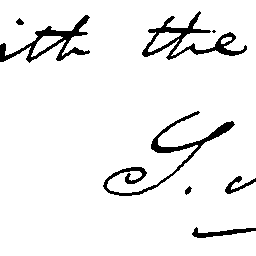 ith the
S.